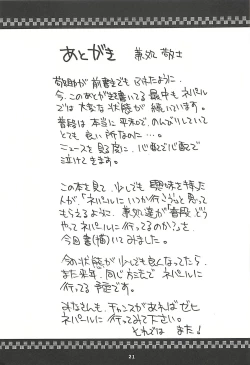 あとがき
敬助が前書きでもふれたように、
今、このあとがきを書いてる最中もネパール
では大変な状態が続いています。
普段は本当に平和で、のんびりしていて
とても良い所なのに…。
ニュースを見る度に、心配で心配で
泣けてきます。
この本を見て、少しでも興味を持った
人が「ネパールにいつか行こう」と思って
もらえるように、
やってネパールに行ってるのか？を、
今回書(描)いてみました。
今の状態が少しでも良くなってたら、
また来年、同じ方法でネパールに
行ってる予定です。
みなさんも、チャンスがあればゼヒ
ネパールに行ってみて下さい。
それでは また♪
21